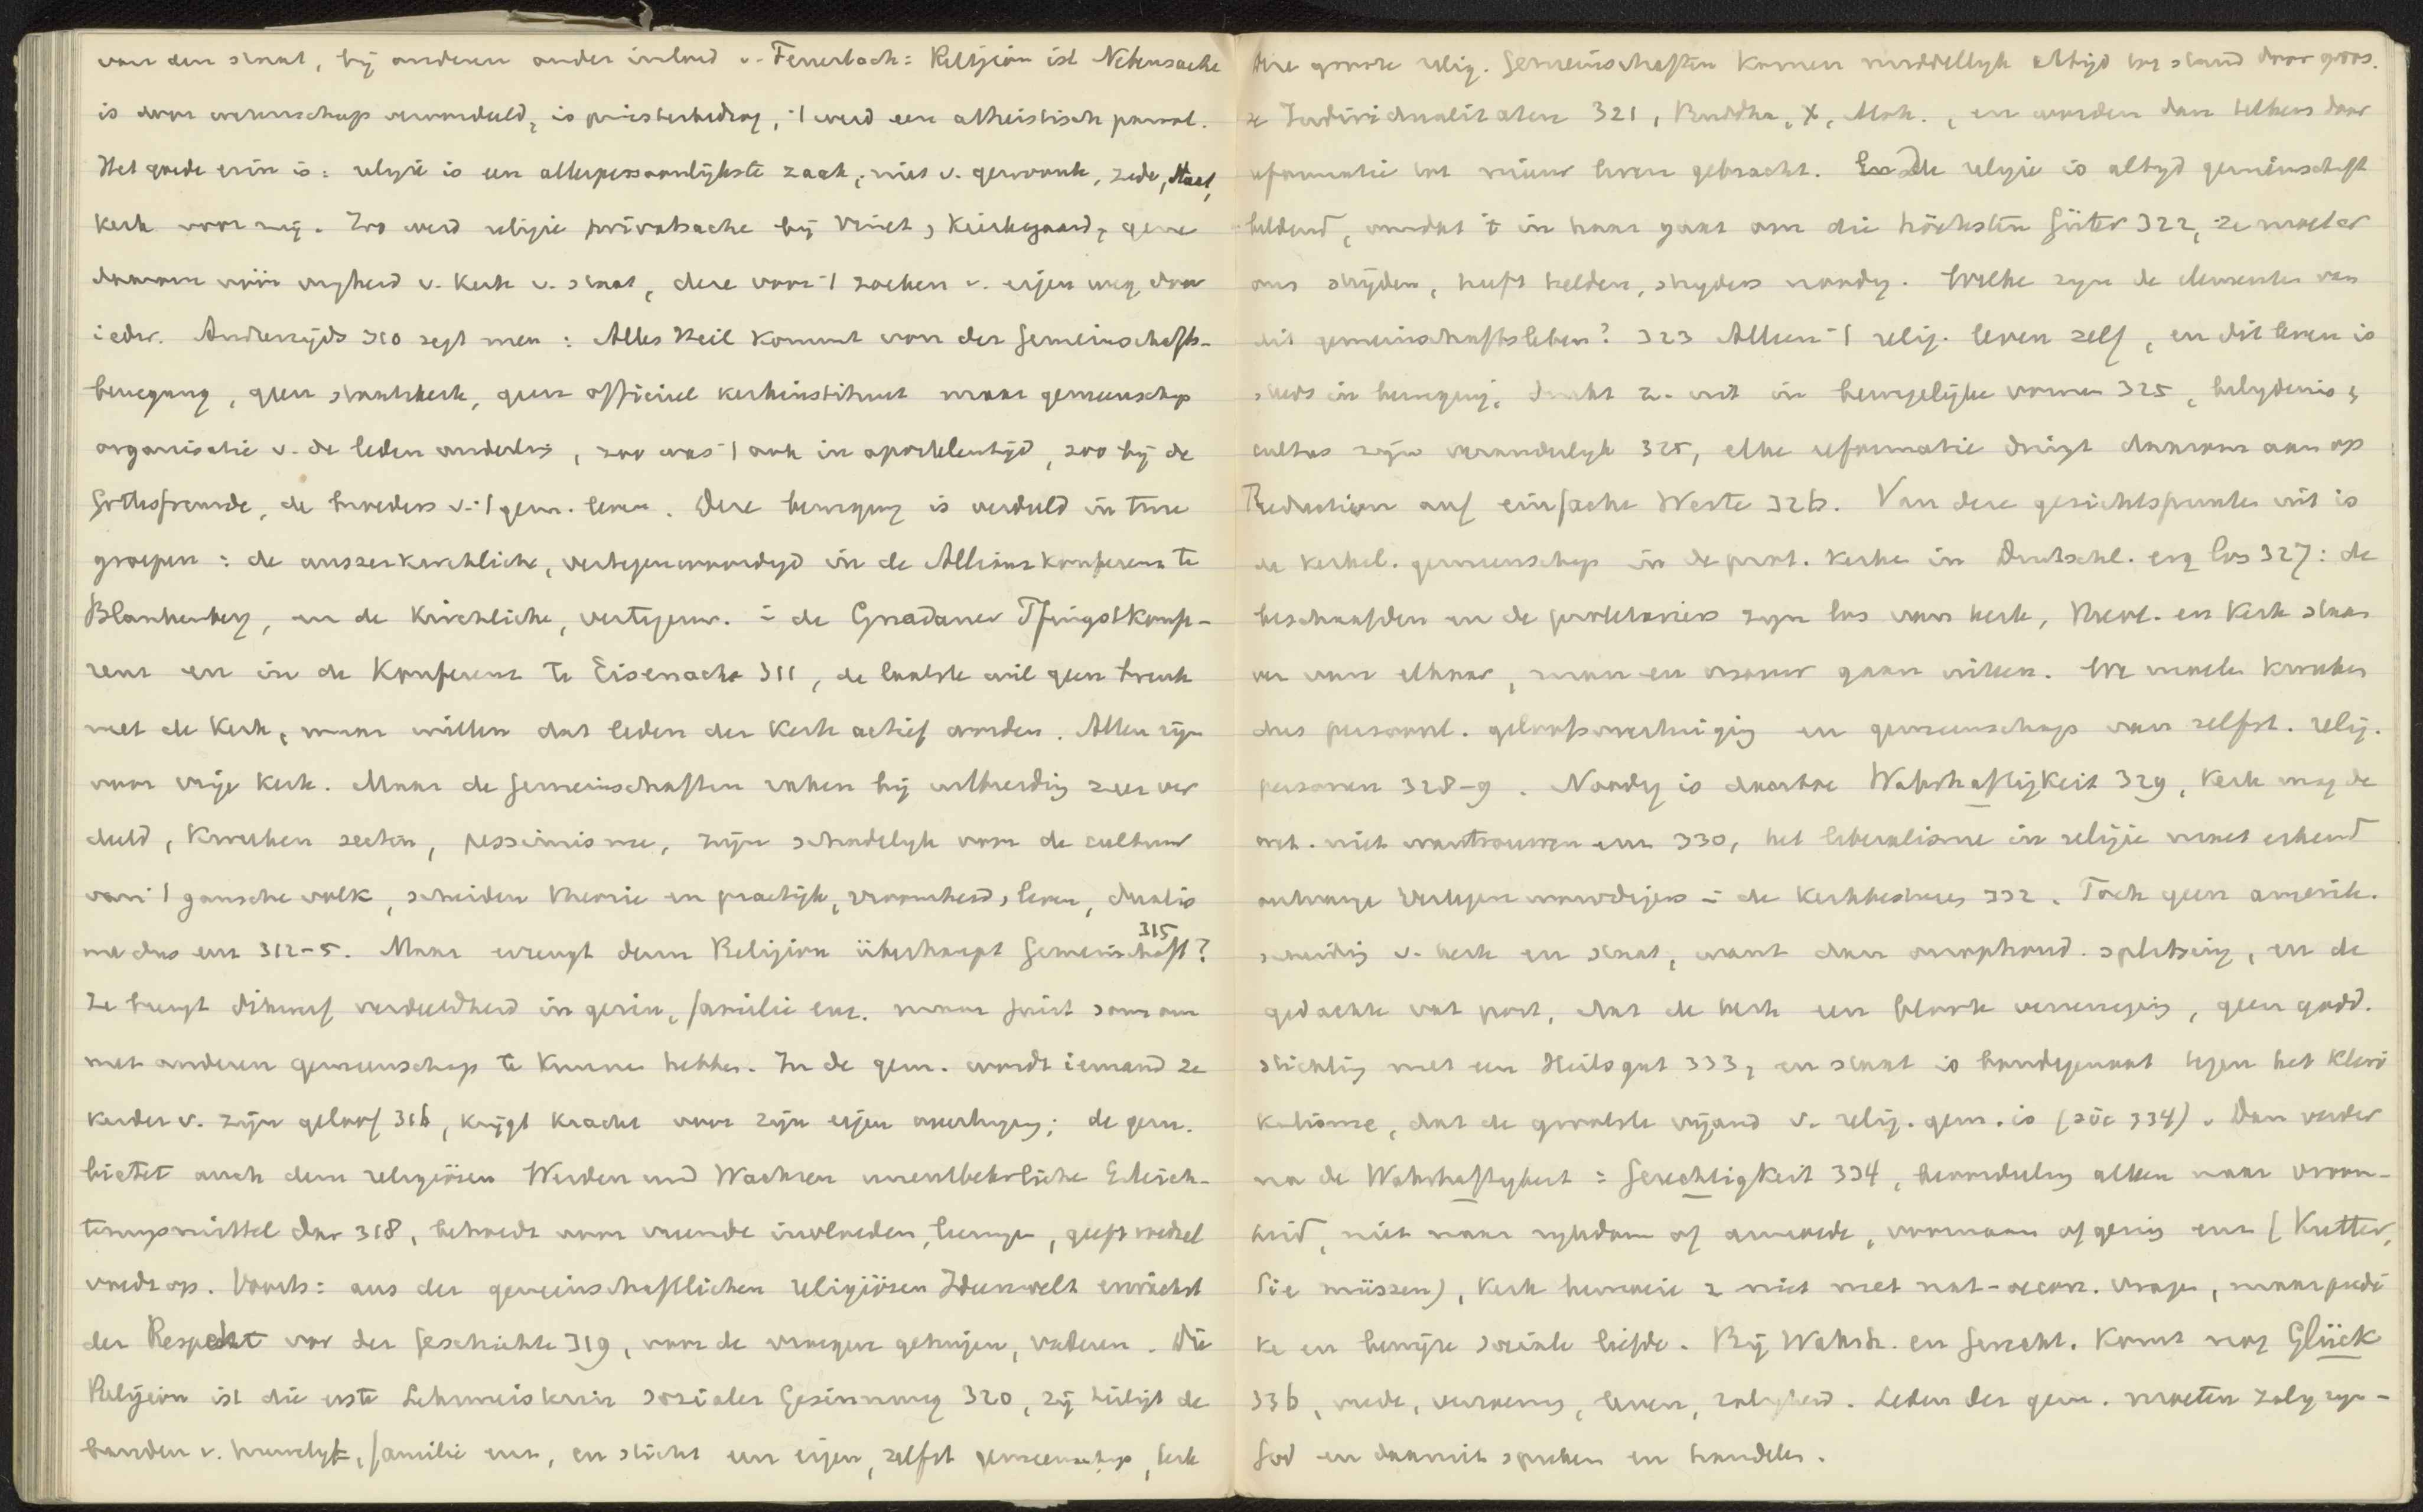 van den staat, bij anderen onder invloed v. Feuerbach: Religion ist Nebensache
is door wetenschap veroordeeld, is priesterbedrog, 't werd een atheistisch parool.
Het goede erin is: religie is een allerpersoonlijkste zaak, niet v. gewoonte, zede, staat,
kerk voor mij. Zoo werd religie privatsache bij Vinet, Kierkegaard, gene
daarom vóór vrijheid v. kerk v. staat, deze voor 't zoeken v. eigen weg door
ieder. Anderzijds 310 zegt men: Alles Heil kommt von der Gemeinschafts-
bewegung, geen staatskerk, geen officieel kerkinstituut maar gemeenschap
organisatie v. de leden onderling, zoo was 't ook in aposteltijd, zoo bij de
Gottesfreunde, de broeders v. 't gem. leven. Deze beweging is verdeeld in twee
groepen: de ausserkirchliche, vertegenwoordigd in de Allianzkonferenz te
Blankenberg, en de kirchliche, vertegenw. i. de Gnadauer Pfingstkonfe-
renz en in de Konferenz te Eisenach 311, de laatste wil geen breuk
met de kerk, maar willen dat leden der kerk actief worden. Allen zijn
voor vrije kerk. Maar de Gemeinschaften raken bij uitbreiding zeer ver
deeld, kweeken secten, pessimisme, zijn schadelijk voor de cultuur
van 't gansche volk, scheiden theorie en practijk, vroomheid, leven, dualis
me dus enz 312-5. Maar erzeugt denn Religion überhaupt Gemeinschaft? 315
Ze brengt dikwerf verdeeldheid in gezin, familie enz. maar juist daarom
met anderen gemeenschap te kunnen hebben. In de gem. wordt iemand ze
kerder v. zijn geloof 316, krijgt kracht voor zijn eigen overtuiging; de gem.
bietet auch dem religiösen Werden und Wachsen unentbehrliche Erleich-
terungsmittel dar 318, behoedt voor vreemde invloeden, neigingen, geeft voedsel
Voorts: aus der gemeinschaftlichen religiösen Ideenwelt erwächst
der Respekt vor der Geschichte 319, voor de vroegere getuigen, vaderen. Die
Religion ist die erste Lehrmeisterin sozialer Gesinnung 320, zij heiligt de
banden v. huwelijk, familie enz, en sticht een eigen, zelfst gemeenschap, kerk
Die groote relig. Gemeinschaften komen middellijk altijd tot stand door groo.
ze Individualitäten 321, Buddha, X, Moh., en worden dan telkens door
reformatie tot nieuw leven gebracht. En de religie is altijd gemeinschaft
beldend, omdat 't in haar gaat om die höchsten Güter 322, ze moet er
om strijden, heeft helden, strijders noodig. Welke zijn de elementen van
dit gemeinschaftsleben? 323 Alleen 't relig. leven zelf, en dit leven is
steeds in beweging, drukt z. uit in bewegelijke vormen 325, belijdenis &
cultus zijn veranderlijk 325, elke reformatie dringt daarom aan op
Reduktion auf einfache Werte 326. Van deze gezichtspunten uit is
de kerkel. gemeenschap in de prot. kerken in Duitschl. erg los 327: de
beschaafden en de proletariers zijn los van kerk, theol. en kerk staan
ver van elkaar, man en vrouw gaan uiteen. We moeten kweeken
dus persoonl. geloofsovertuiging en gemeenschap van zelfst. relig.
personen 328-9. Noodig is daartoe Wahrhaftigkeit 329, kerk mag de
wet. niet wantrouwen enz 330, het liberalisme in religie moet erkend
ontvange vertegenwoordigers i. de kerkbesturen 332. Toch geen amerik.
scheiding v. kerk en staat, want dan onophoud. splitsing, en de
gedachte vat post, dat de kerk een bloote vereeniging, geen godd.
stichting met een Heilsgut 333, en staat is bondgenoot tegen het kleri
kalisme, dat de grootste vijand v. relig. gem. is (sic 334). Dan verder
na de Wahrhaftigkeit: Gerechtigkeit 334, beoordeeling alleen naar vroom-
heid, niet naar rijkdom of armoede, voornaam of gering enz (Kutter,
Sie müssen), kerk bemoeie z niet met nat-oecon. vragen, maar predi
ke en bewijze sociale liefde. Bij Wahrh. en Gerecht. komt nog Glück
336, vrede, verzoening, leven, zaligheid. Leden der gem. moeten zalig zijn -
God en daaruit spreken en handelen.